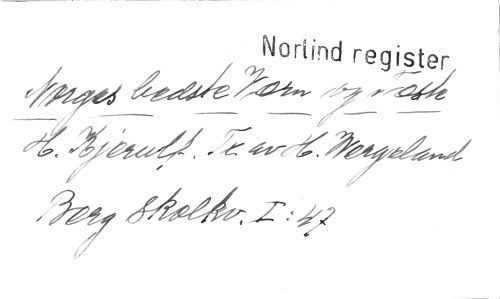 Norlind register
Norges bedste Værn og Fæste
H. Kjerulf. Tx av H. Wergeland
Berg Skolkv. I: 47